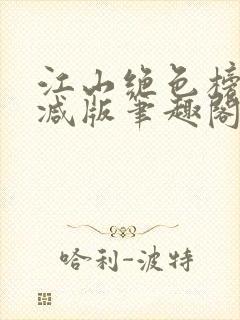 江山绝色榜
减版笔趣阁
哈利-波特